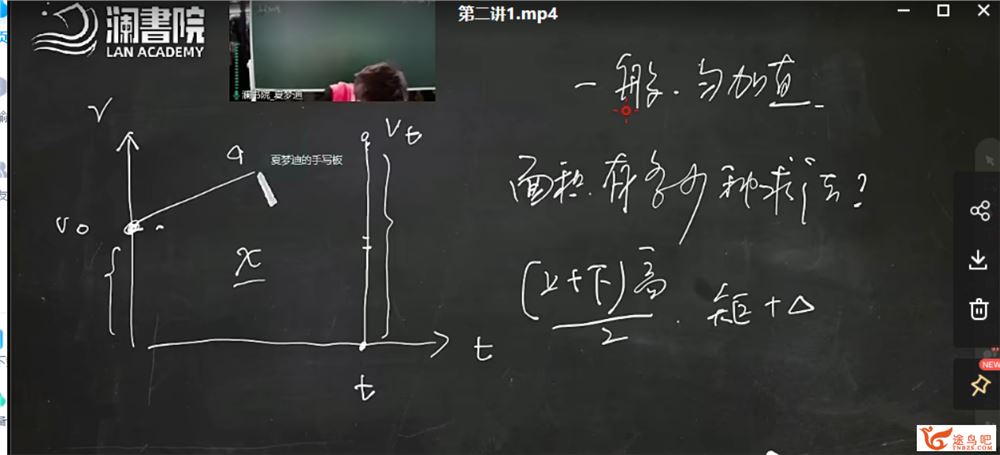 第二讲1.mp4
澜書院
LAN ACADEMY
澜书院_夏梦迪
一般.匀加直
V
a
夏梦迪的手写板
Vt
面积.有多少种求法?
V0
x
(上+下)高
2
矩+△
t
t
NEW
途鸟吧
TNBZS.COM